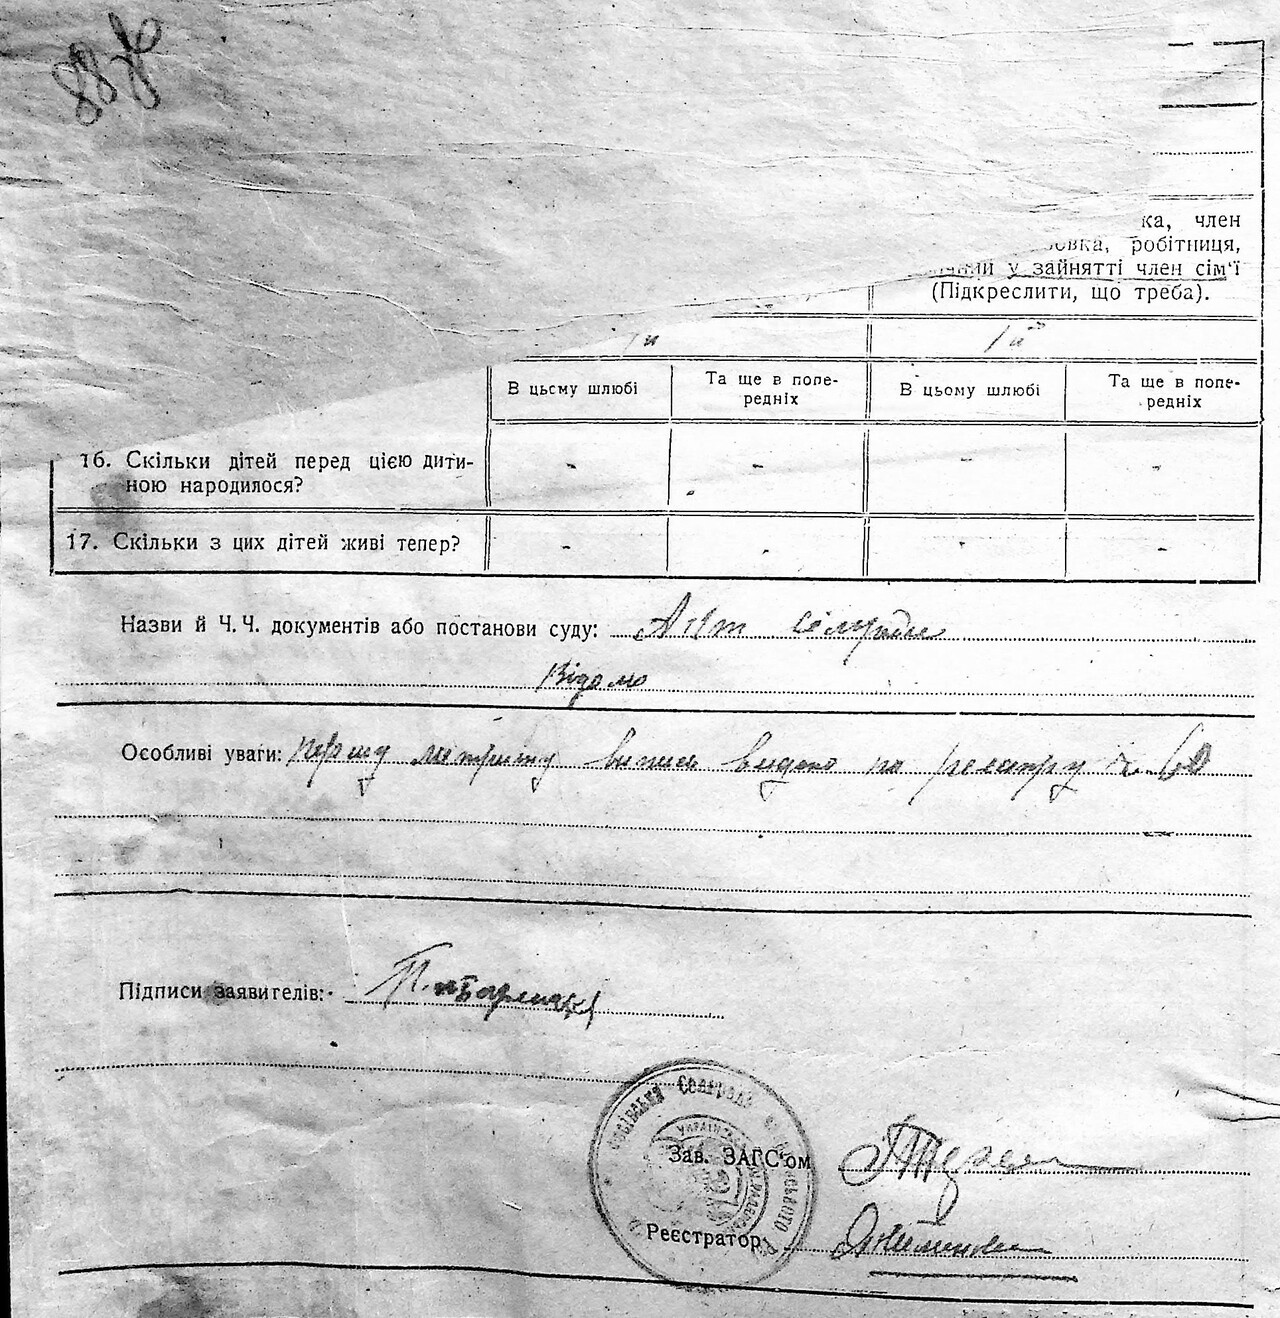 88
ка, член
робітниця,
у зайнятті член сім'ї
(Підкреслити, що треба).
В цьому шлюбі
Та ще в попе-
редніх
В цьому шлюбі
Та ще в попе-
редніх
16. Скільки дітей перед цією дити-
ною народилося?
- - - -
17. Скільки з цих дітей живі тепер?
- - - -
Назви й Ч. Ч. документів або постанови суду: Акт сільради
Відомо
Особливі уваги: першу метричну випись видано по реєстру № 60
Підписи заявителів:
Сельрада
Зав. ЗАГС'ом
Реєстратор